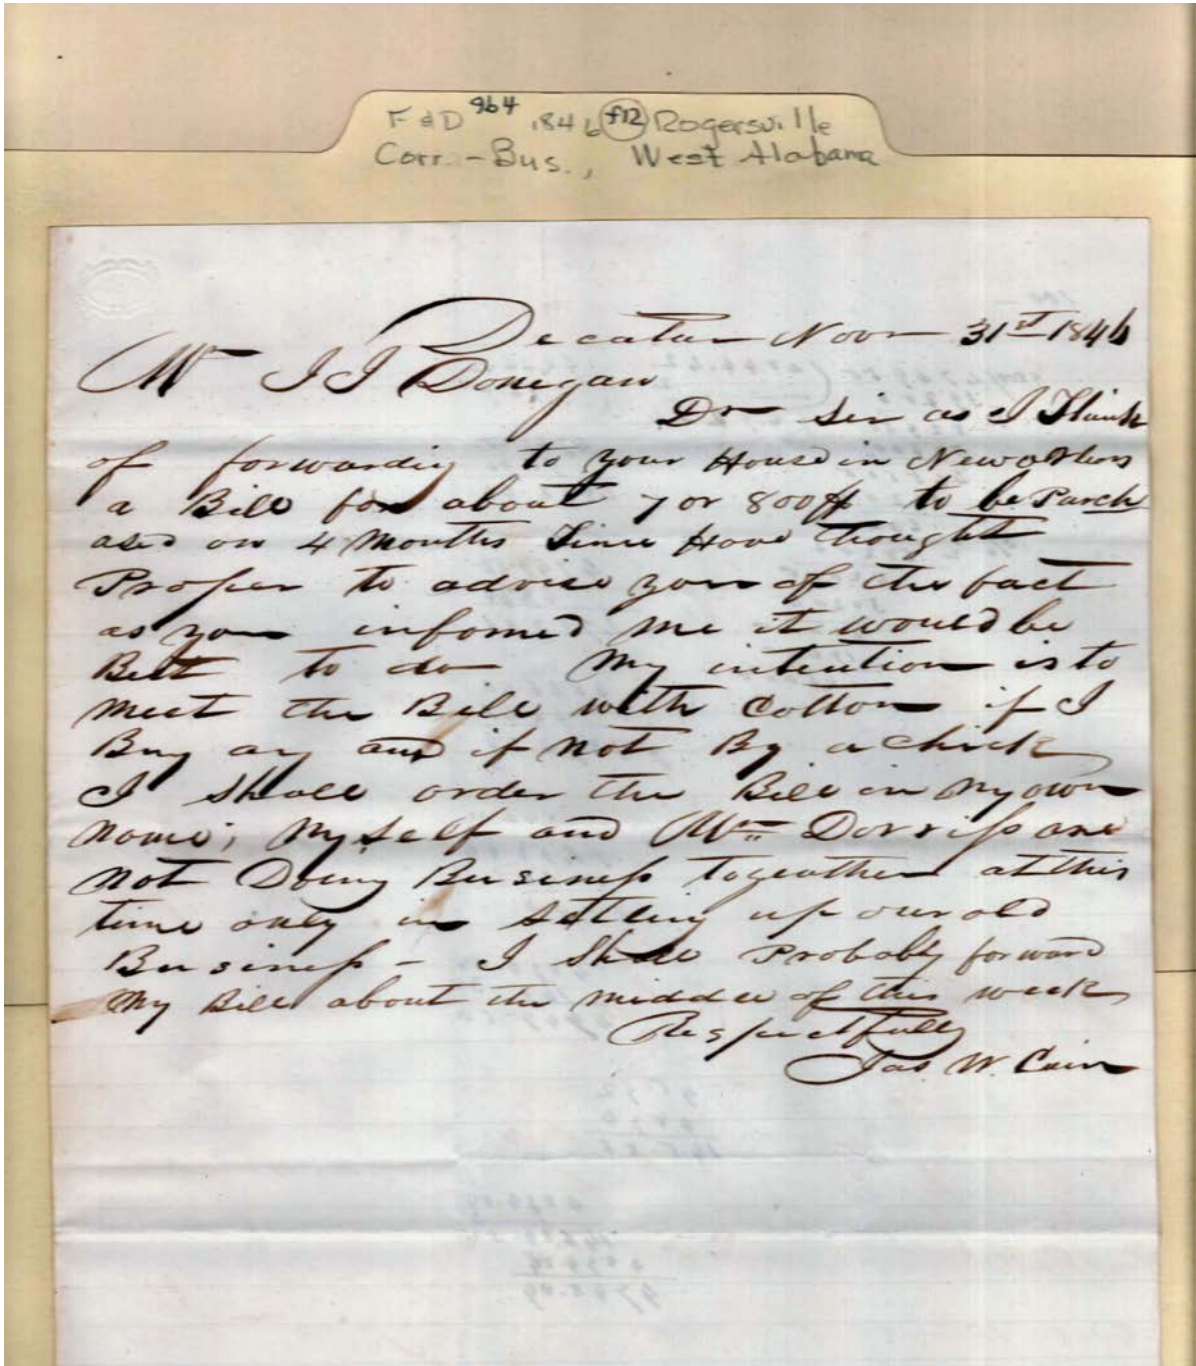 F & D 964 1846 f12 Rogersville
Corr. - Bus., West Alabama
Decatur Novr 31st 1846
Mr J J Donegan
Dr Sir as I Think
of forwardig to your House in New orlens
a Bill for about 7 or 800 to be Parch
ased on 4 Months Time Have thought
Proper to advise you of the fact
as you infomed me it would be
Best to do My intention is to
meet the Bill with Cotton if I
Buy any and if not By a check
I shall order the Bill in my own
name; My self and Mr Dorriss are
not Doing Business togeather at this
time only in Setling up our old
Business - I Shall Probably forward
My Bill about the middle of this week
Respectfully
Jas. W. Cain